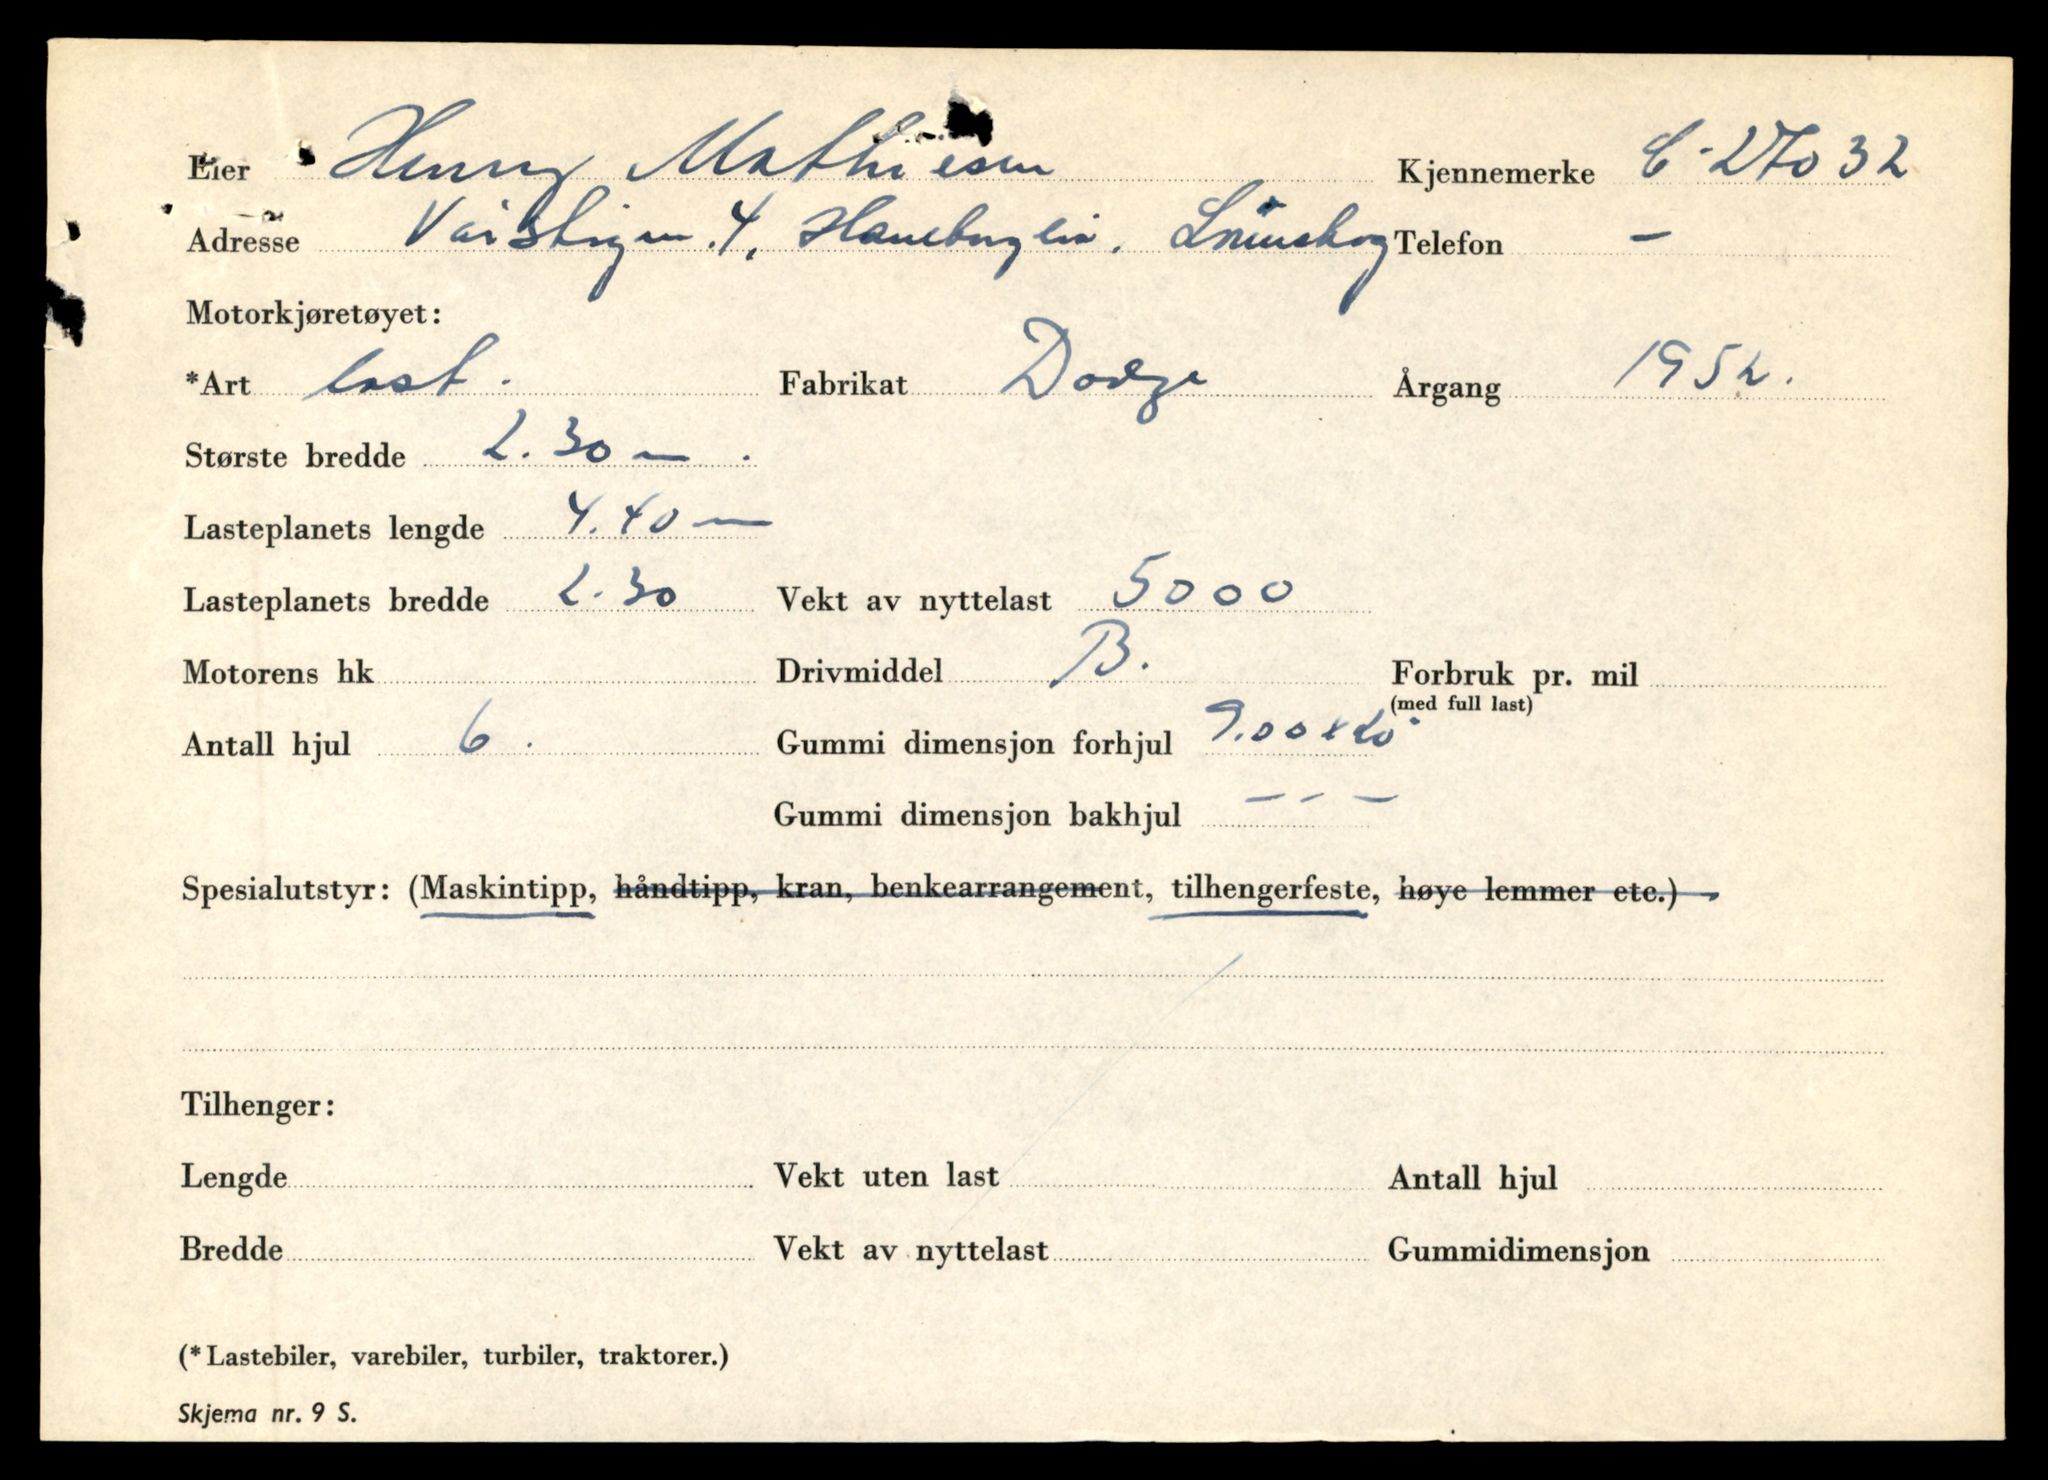 Eier Henry Mathiesen Kjennemerke C-27032
Adresse Vårstigen 4, Haneborglia, Lørenskog Telefon –
Motorkjøretøyet:
*Art last. Fabrikat Dodge Årgang 1952.
Største bredde 2.30 m.
Lasteplanets lengde 4.40 m
Lasteplanets bredde 2.30 Vekt av nyttelast 5000
Motorens hk Drivmiddel B. Forbruk pr. mil
(med full last)
Antall hjul 6. Gummi dimensjon forhjul 9.00x20
Gummi dimensjon bakhjul – – –
Spesialutstyr: (Maskintipp, håndtipp, kran, benkearrangement, tilhengerfeste, høye lemmer etc.)
Tilhenger:
Lengde Vekt uten last Antall hjul
Bredde Vekt av nyttelast Gummidimensjon
(*Lastebiler, varebiler, turbiler, traktorer.)
Skjema nr. 9 S.